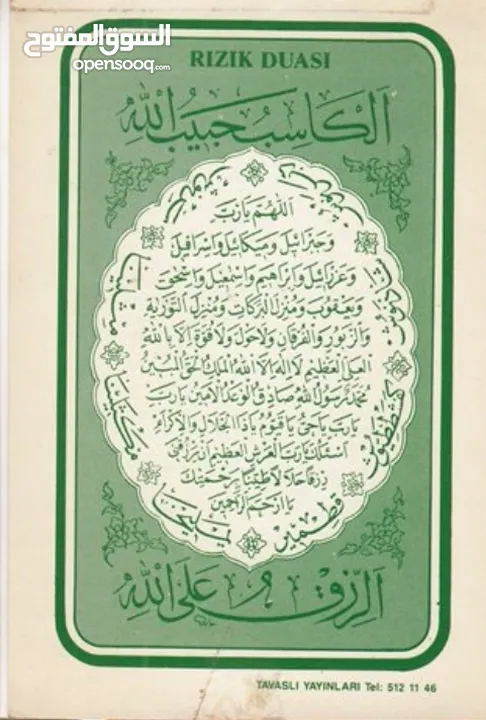 السوق المفتوح
opensooq.com
RIZIK DUASI
الكاسب حبيب الله
اللهم يارب
وجبرائيل وميكائيل واسرافيل
وعزرائيل وابراهيم واسمعيل واسحق
ويعقوب ومنزل البركات ومنزل التورية
والزبور والفرقان ولاحول ولاقوة الا بالله
العلى العظيم لااله الا الله الملك الحق المبين
محمد رسول الله صادق الوعد الامين يارب
يارب ياحى ياقيوم ياذا الجلال والاكرام
اسئلك يارب العرش العظيم ان ترزقنى
رزقا حلالا طيبا برحمتك
يا ارحم الراحمين
يمليخا
مكثلينا
مثلينا
مرنوش
دبرنوش
شاذنوش
كفشططيوش
قطمير
الرزق على الله
TAVASLI YAYINLARI Tel: 512 11 46